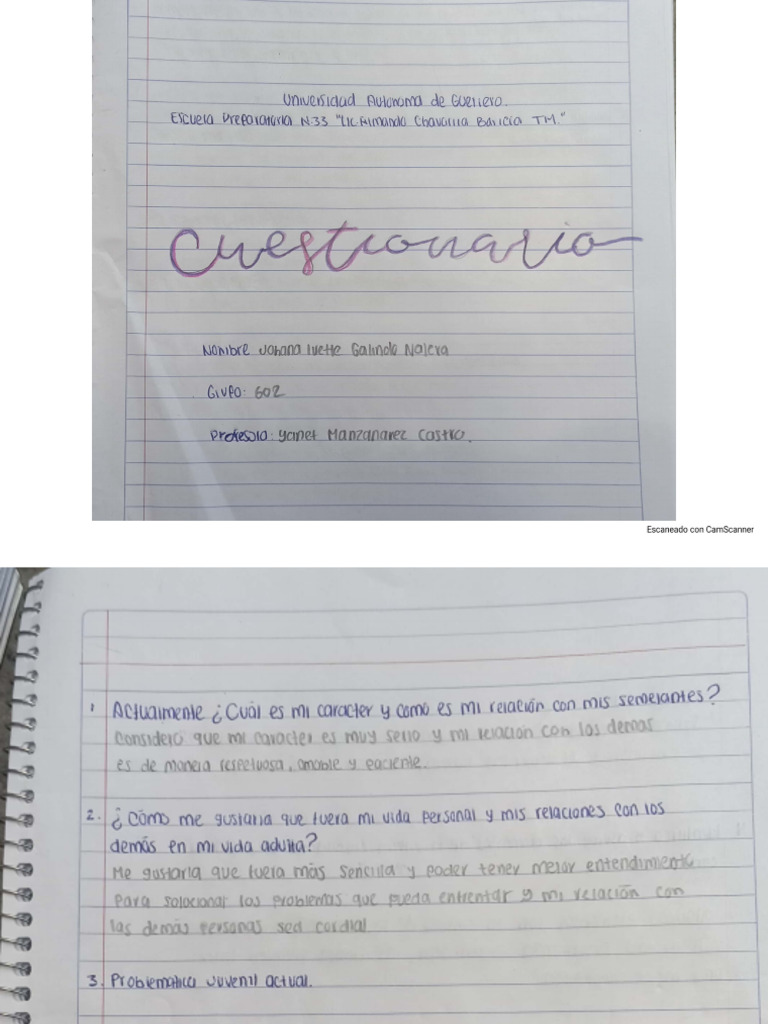 Universidad Autonoma de Guerrero.
Escuela Preparatoria N.33 "Lic. Armando Chavarria Barrera TM."
Cuestionario
Nombre Johana Ivette Galindo Najera
Grupo: 602
Profesora: Yanet Manzanarez Castro.
Escaneado con CamScanner
1 Actualmente ¿Cuál es mi caracter y como es mi relación con mis semejantes?
Considero que mi caracter es muy serio y mi relación con los demas
es de manera respetuosa, amable y paciente.
2. ¿Cómo me gustaria que fuera mi vida personal y mis relaciones con los
demás en mi vida adulta?
Me gustaria que fuera más sencilla y poder tener mejor entendimiento
para solucionar los problemas que pueda enfrentar y mi relación con
las demás personas sea cordial
3. Problematica Juvenil actual.